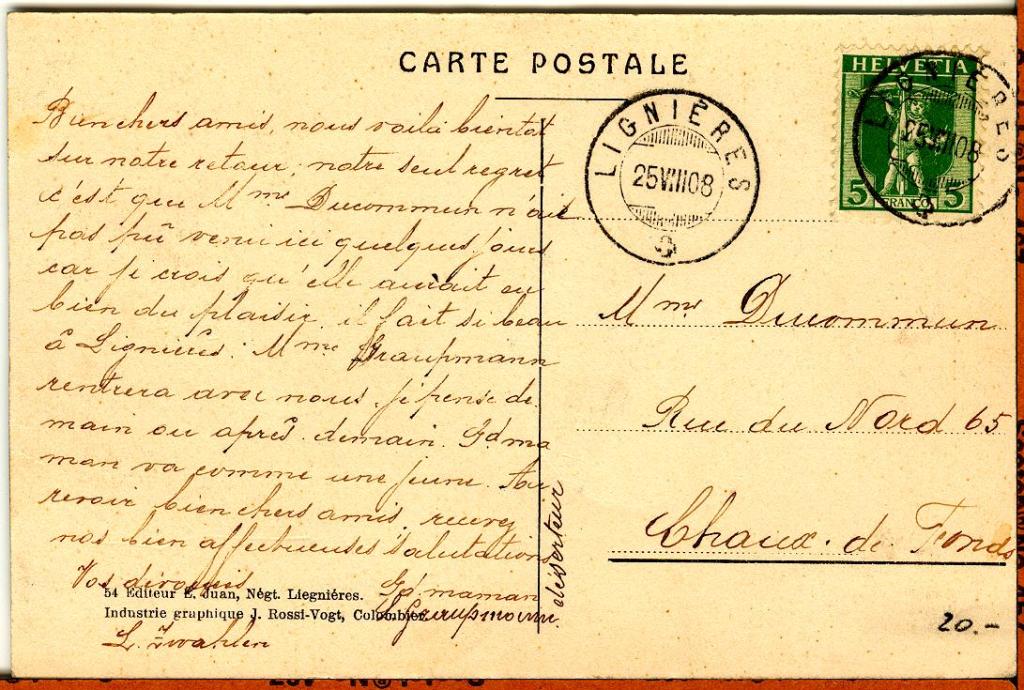 CARTE POSTALE
HELVETIA
5 FRANCO 5
LIGNIÈRES
25 VIII 08
LIGNIÈRES
25 VIII 08
Bien chers amis, nous voilà bientôt
sur notre retour, notre seul regret
c'est que Mme Ducommun n'ait
pas pû venir ici quelques jours
car je crois qu'elle aurait eu
bien du plaisir, il fait si beau
à Lignières. Mme Graupmann
rentrera avec nous, je pense de
main ou après-demain. Gd ma
man va comme une jeune. Au
revoir bien chers amis, recevez
nos bien affectueuses salutations
Vos dévoués
Gd maman
Graupmann
L. Zwahlen
déserteur
54 Editeur E. Juan, Négt. Liegniéres.
Industrie graphique J. Rossi-Vogt, Colombier.
Mme Ducommun
Rue du Nord 65
Chaux-de-Fonds
20.-